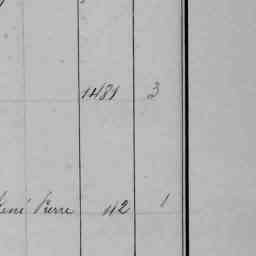 1481 3
René Pierre 112 1